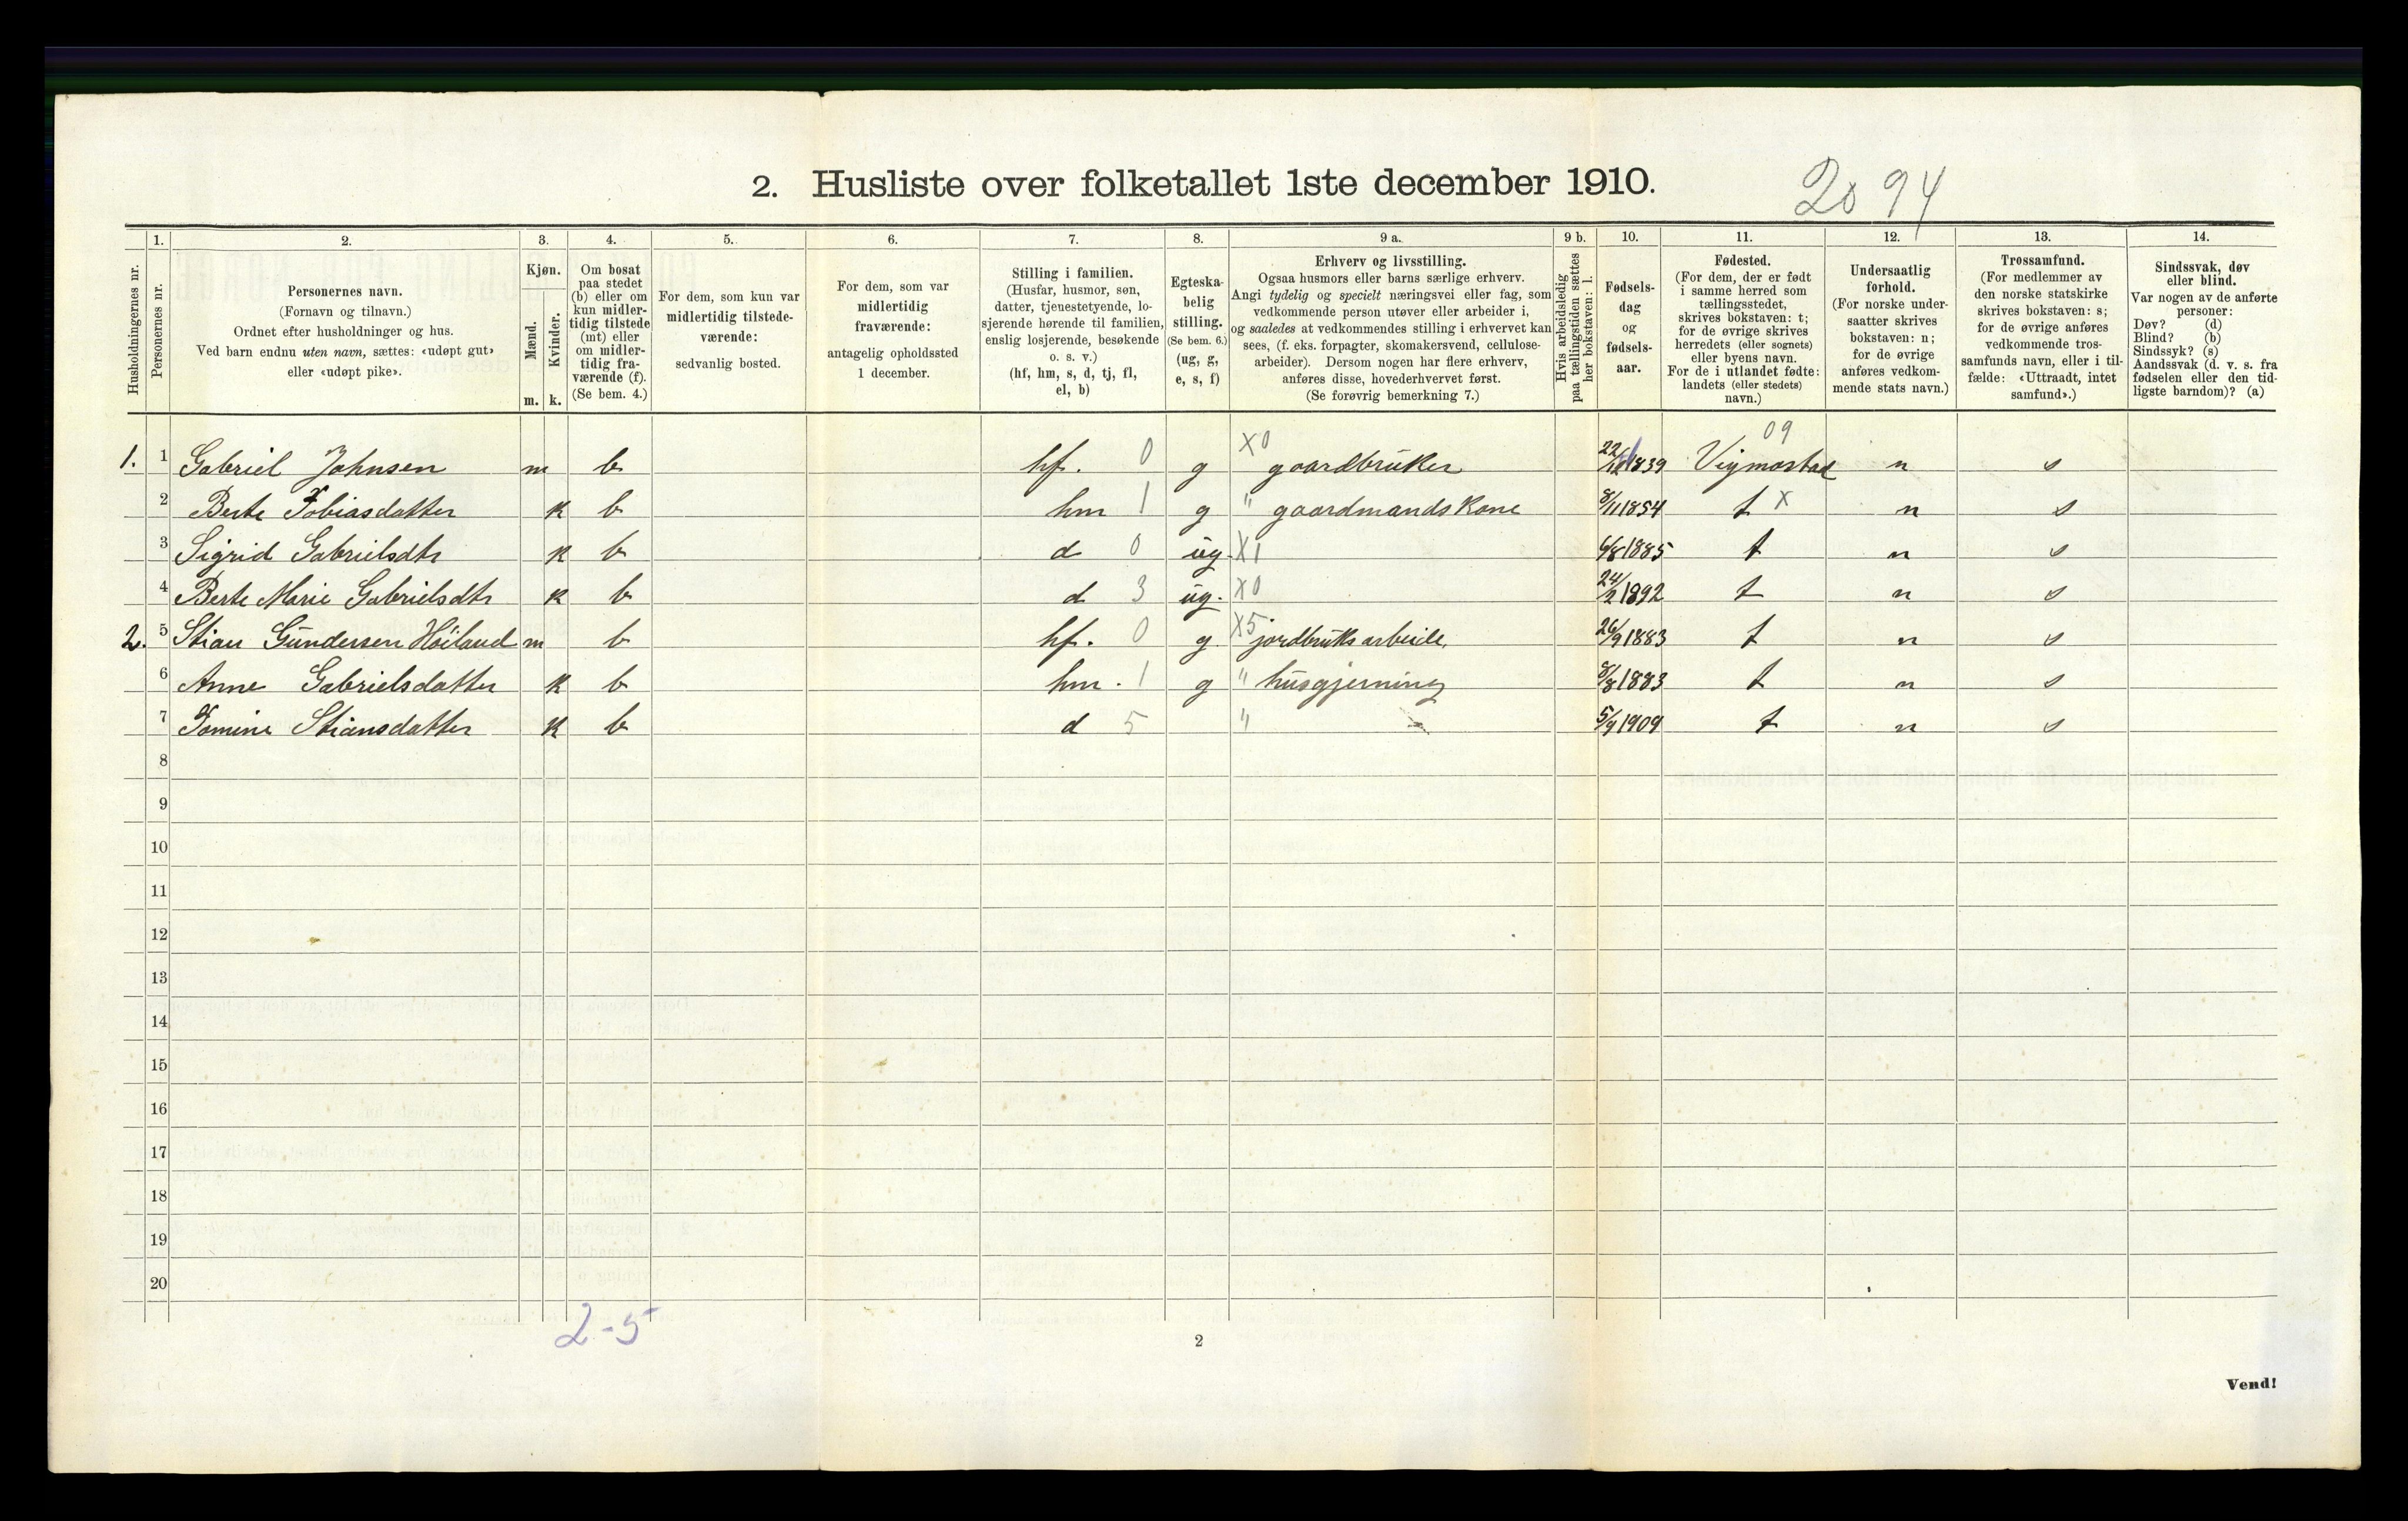 2. Husliste over folketallet 1ste december 1910.
2094
1. 2. 3. 4. 5. 6. 7. 8. 9 a. 9 b. 10. 11. 12. 13. 14.
Husholdningernes nr.
Personernes nr.
Personernes navn.
(Fornavn og tilnavn.)
Ordnet efter husholdninger og hus.
Ved barn endnu uten navn, sættes: «udøpt gut»
eller «udøpt pike».
Kjøn.
Mænd.
Kvinder.
m. k.
Om bosat
paa stedet
(b) eller om
kun midler-
tidig tilstede
(mt) eller
om midler-
tidig fra-
værende (f).
(Se bem. 4.)
For dem, som kun var
midlertidig tilstede-
værende:
sedvanlig bosted.
For dem, som var
midlertidig
fraværende:
antagelig opholdssted
1 december.
Stilling i familien.
(Husfar, husmor, søn,
datter, tjenestetyende, lo-
sjerende hørende til familien,
enslig losjerende, besøkende
o. s. v.)
(hf, hm, s, d, tj, fl,
el, b)
Egteska-
belig
stilling.
(Se bem. 6.)
(ug, g,
e, s, f)
Erhverv og livsstilling.
Ogsaa husmors eller barns særlige erhverv.
Angi tydelig og specielt næringsvei eller fag, som
vedkommende person utøver eller arbeider i,
og saaledes at vedkommendes stilling i erhvervet kan
sees, (f. eks. forpagter, skomakersvend, cellulose-
arbeider). Dersom nogen har flere erhverv,
anføres disse, hovederhvervet først.
(Se forøvrig bemerkning 7.)
Hvis arbeidsledig
paa tællingstiden sættes
her bokstaven: l.
Fødsels-
dag
og
fødsels-
aar.
Fødested.
(For dem, der er født
i samme herred som
tællingsstedet,
skrives bokstaven: t;
for de øvrige skrives
herredets (eller sognets)
eller byens navn.
For de i utlandet fødte:
landets (eller stedets)
navn.)
Undersaatlig
forhold.
(For norske under-
saatter skrives
bokstaven: n;
for de øvrige
anføres vedkom-
mende stats navn.)
Trossamfund.
(For medlemmer av
den norske statskirke
skrives bokstaven: s;
for de øvrige anføres
vedkommende tros-
samfunds navn, eller i til-
fælde: «Uttraadt, intet
samfund».)
Sindssvak, døv
eller blind.
Var nogen av de anførte
personer:
Døv? (d)
Blind? (b)
Sindssyk? (s)
Aandssvak (d. v. s. fra
fødselen eller den tid-
ligste barndom)? (a)
09
1. 1 Gabriel Johnsen m b hf. 0 g X0 gaardbruker 1839 Vigmostad n s
2 Berte Tobiasdatter k b hm 1 g " gaardmandskone 8/11 1854 t X n s
3 Sigrid Gabrielsdtr k b d 0 ug. X1 6/8 1885 t n s
4 Berte Marie Gabrielsdtr k b d 3 ug. X0 24/2 1892 t n s
2. 5 Stian Gundersen Höiland m b hf. 0 g X5 jordbruksarbeide. 26/9 1883 t n s
6 Anne Gabrielsdatter k b hm. 1 g " husgjerning 8/8 1883 t n s
7 Tomine Stiansdatter k b d 5 " 5/9 1909 t n s
8
9
10
11
12
13
14
15
16
17
18
19
20
2-5
2
Vend!